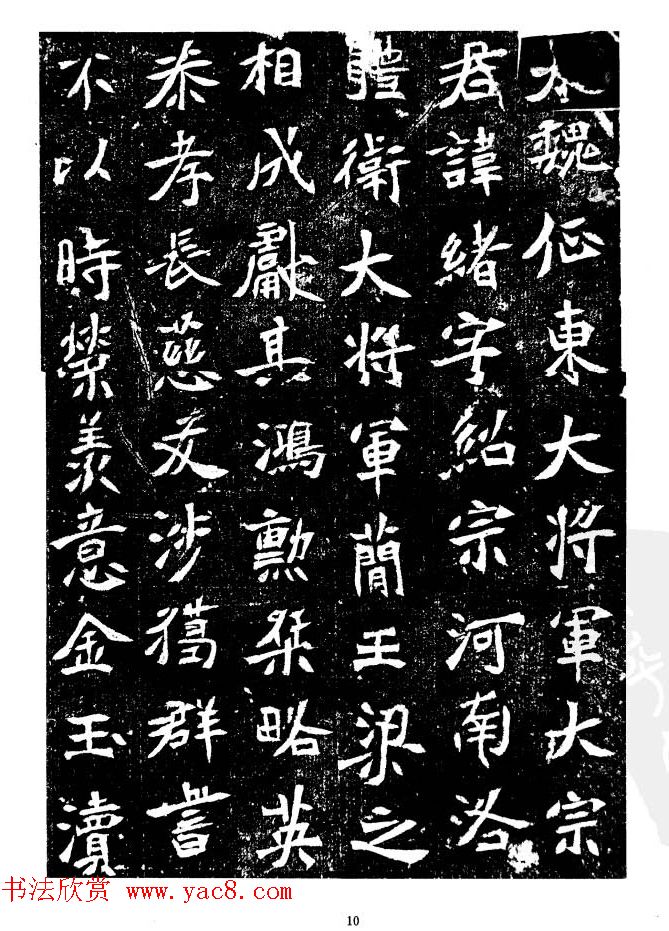 大魏征東大将軍大宗
君諱緒字紹宗河南洛
體衛大将軍簡王梁之
相成獻其鴻勳桀略英
恭孝長慈友涉獦群書
不以時榮羨意金玉瀆
书法欣赏 www.yac8.com
10